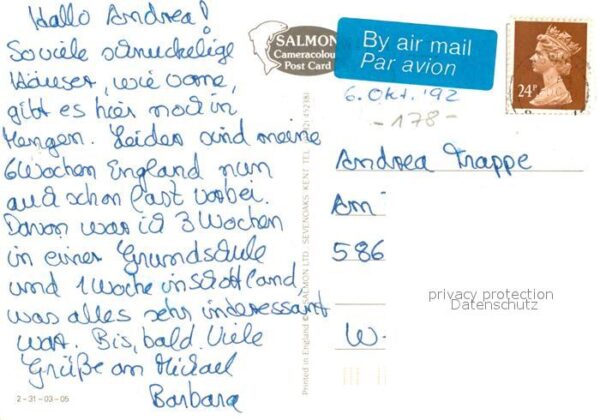 Hallo Andrea!
So viele schnuckelige
Häuser, wie vorne,
gibt es hier noch in
Mengen. Leider sind meine
6 Wochen England nun
auch schon fast vorbei.
Davon war ich 3 Wochen
in einer Grundschule
und 1 Woche in Schottland,
was alles sehr interessant
war. Bis, bald. Viele
Grüße an Michael
Barbara
2-31-03-05
SALMON
Cameracolour
Post Card
Printed in England © SALMON LTD., SEVENOAKS, KENT TEL. 452381
By air mail
Par avion
24P
6. Okt. '92
-178-
Andrea Trappe
Am
586
W-
privacy protection
Datenschutz